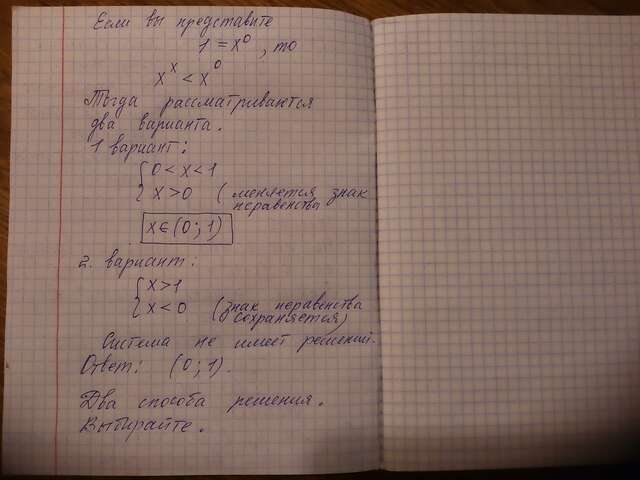 Если вы представите
1 = x⁰, то
xˣ < x⁰
Тогда рассматриваются
два варианта.
1 вариант:
{ 0 < x < 1
{ x > 0 (меняется знак
неравенства
x ∈ (0; 1)
2. вариант:
{ x > 1
{ x < 0 (знак неравенства
сохраняется)
Система не имеет решений.
Ответ: (0; 1).
Два способа решения.
Выбирайте.